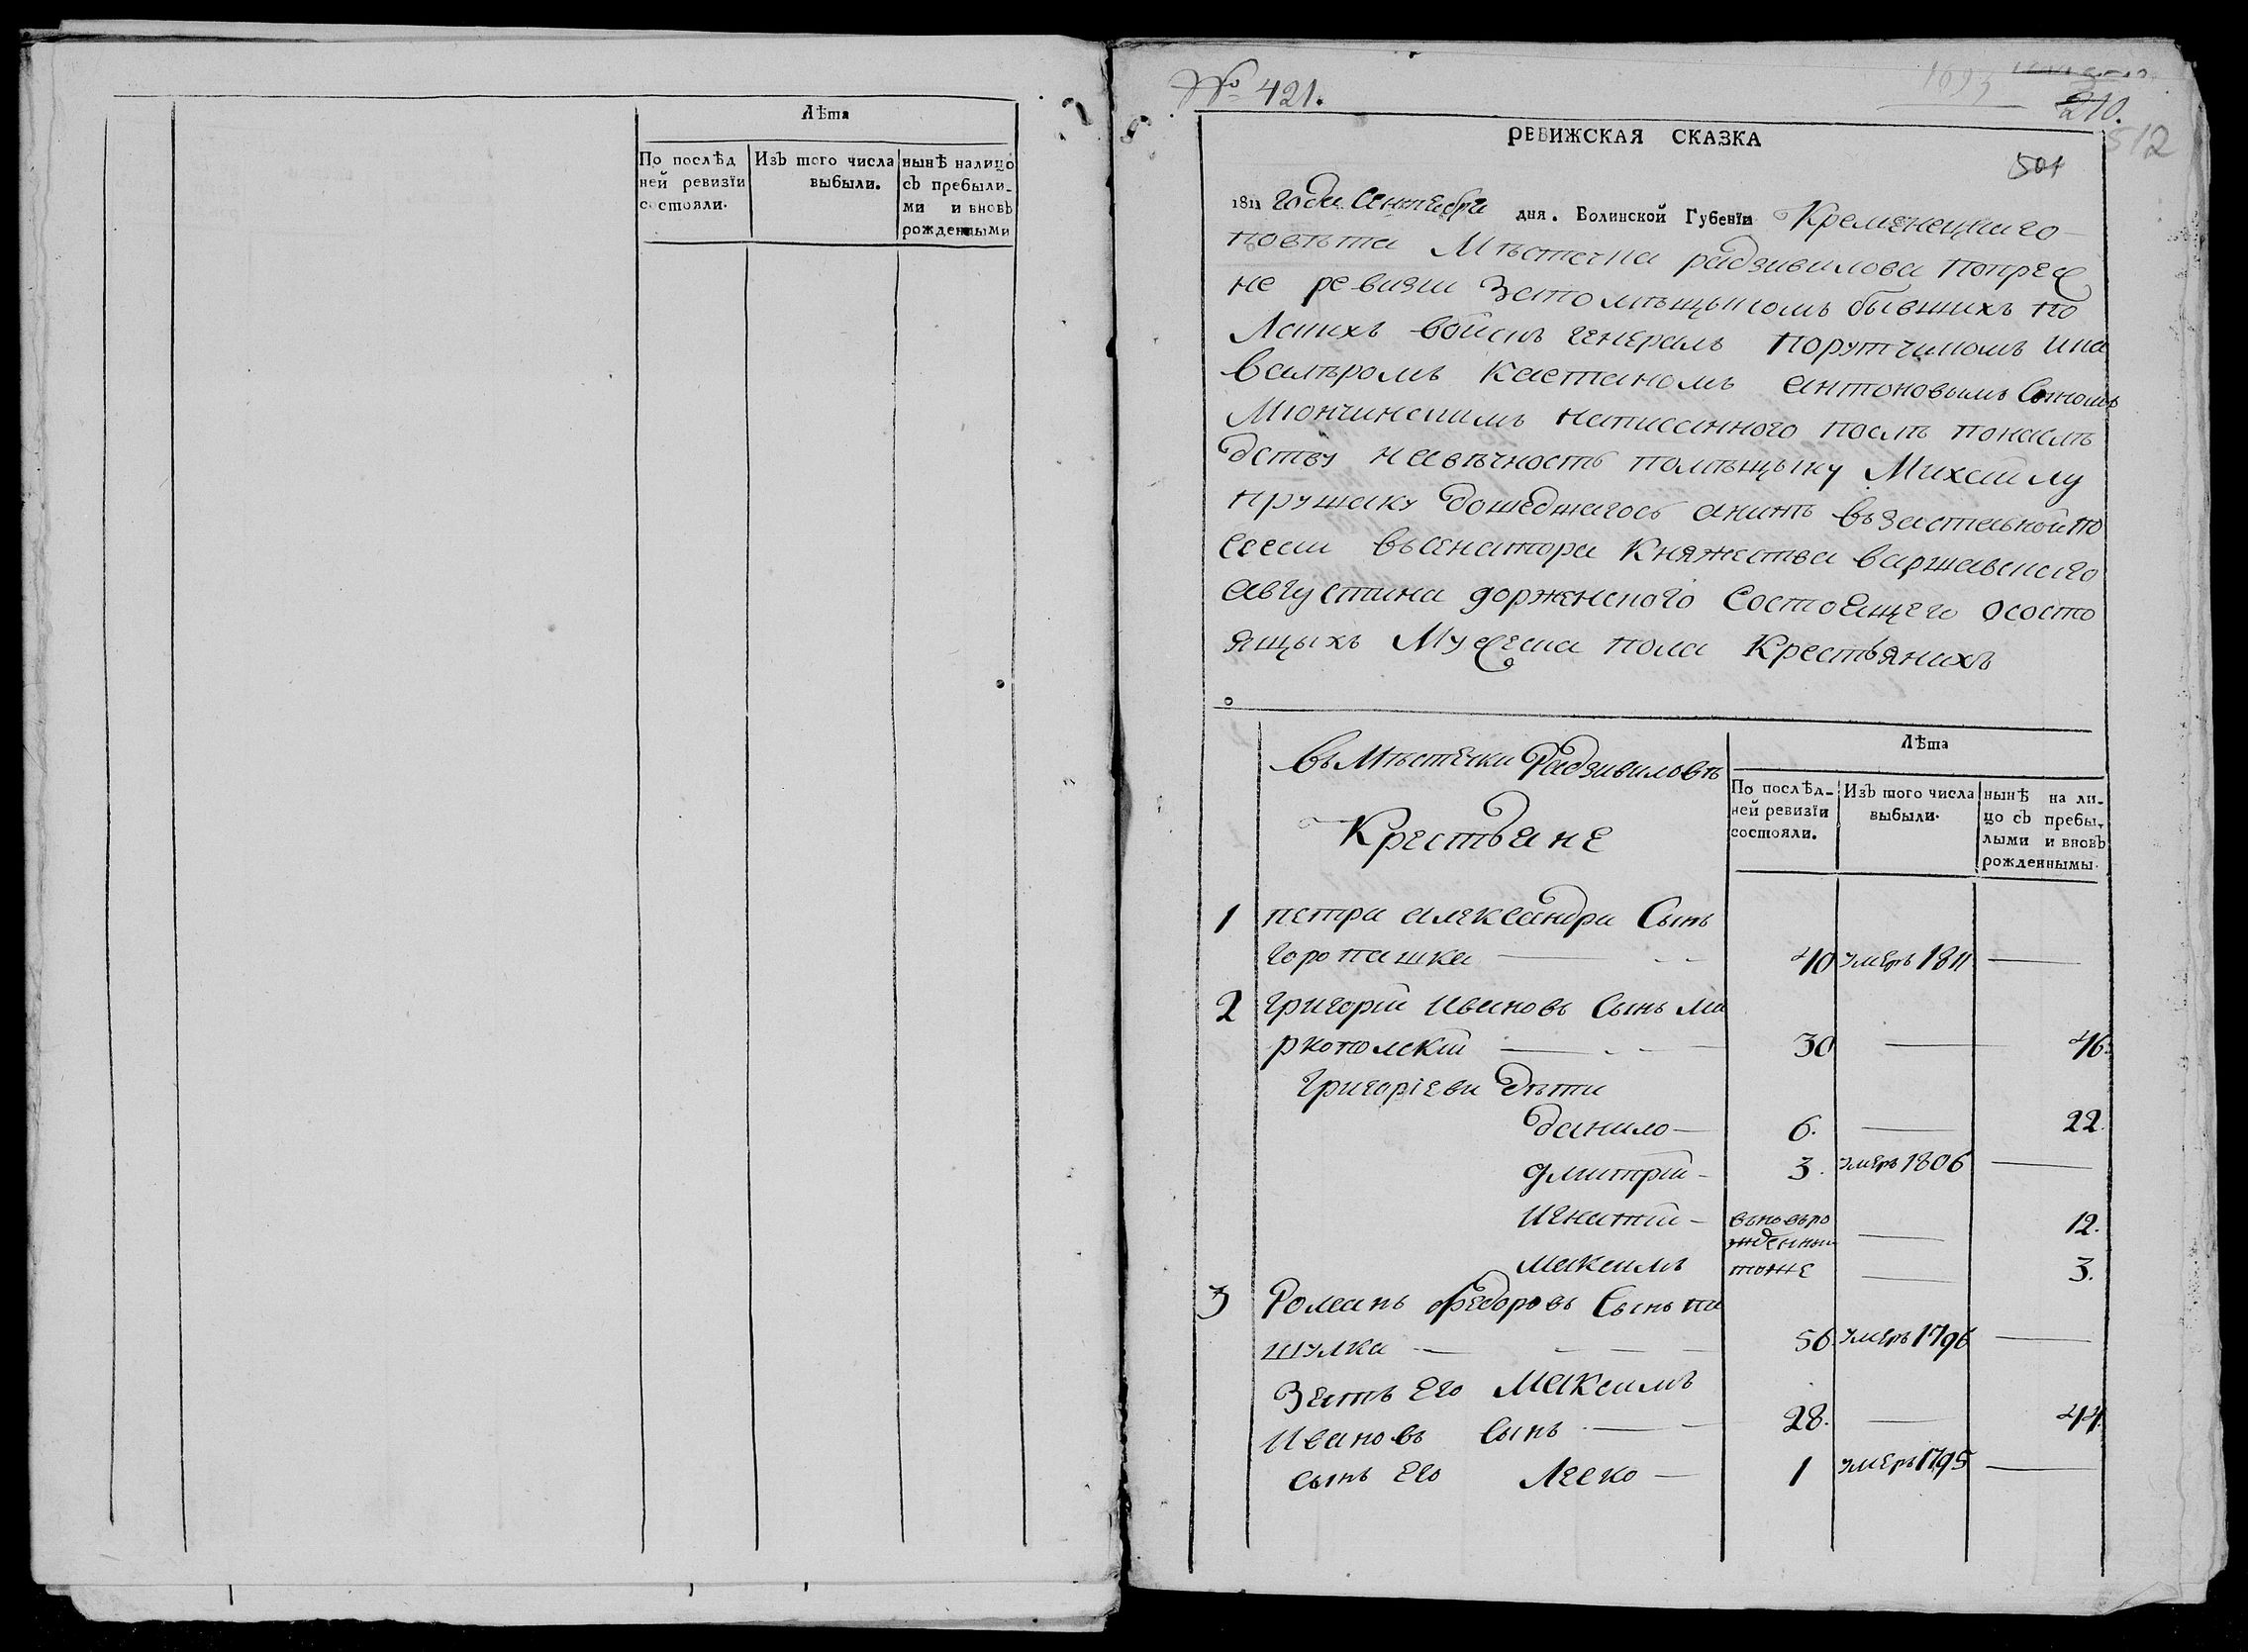 Лѣта
По послѣд
ней ревизїи
состояли.
Изъ того числа
выбыли.
нынѣ налицо
съ пребыли-
ми и вновь
рожденными
№ 421.
210.
512
501
РЕВИЖСКАЯ СКАЗКА
1811 года Сентебра дня. Волинской Губенїи Кременецкаго
повѣта Мѣстечка радзивилова попреж
не ревизи Затомѣщыкомъ бывшихъ по
Лскихъ войскъ генералъ порутчикомъ ика
валѣромъ Каетаномъ антоновымъ Сыномъ
Мюнчинскимъ написанного послѣ понаслѣ
дству навѣчность помѣщыку Михайлу
прушаку дошедшагось анинѣ въ заставной по
сесии въ сенатора Княжества варшавского
августина дорженского состоящего ососто
ящыхъ Мужеска пола Крестьянихъ
въ Мѣстечки Радзивиловѣ
Крестьяне
Лѣта
По послѣд-
ней ревизїи
состояли.
Изъ того числа
выбыли.
нынѣ на ли-
цо съ пребы-
лыми и вновь
рожденнымы.
1 петра александра Сынъ
горопашка 40 умеръ 1811
2 григорій Ивановъ Сынъ Ма
ркополскій 30 46.
Григоріеви дѣти
данило 6. 22.
дмитрій 3. умеръ 1806
Игнатій вьновьро
жденный 12.
максимъ тоже 3.
3 Романъ федоровъ Сынъ па
шулка 56 умеръ 1796
Зять Его Максимъ
Ивановъ Сынъ 28. 44.
сынъ Его Леско 1 умеръ 1795